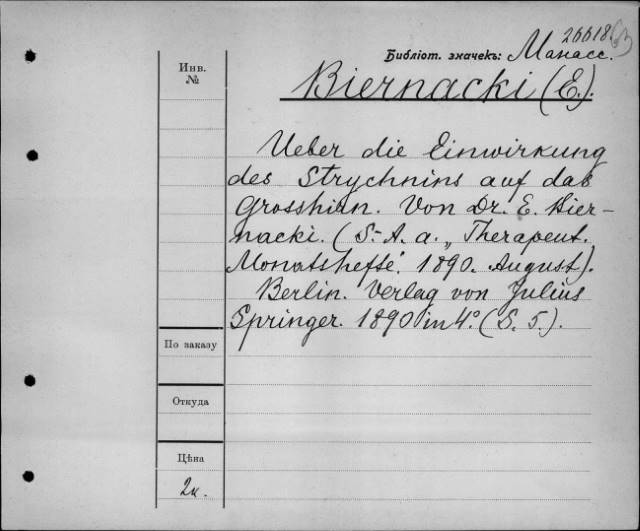 26618
Библіот. значекъ: Манасс.
Инв.
№
Biernacki (E.).
Ueber die Einwirkung
des Strychnins auf das
Grosshirn. Von Dr. E. Bier-
nacki. (S.-A. a. „Therapeut.
Monatshefte‘. 1890. August).
Berlin. Verlag von Julius
Springer. 1890 in 4º. (S. 5.).
По заказу
Откуда
Цѣна
2к.